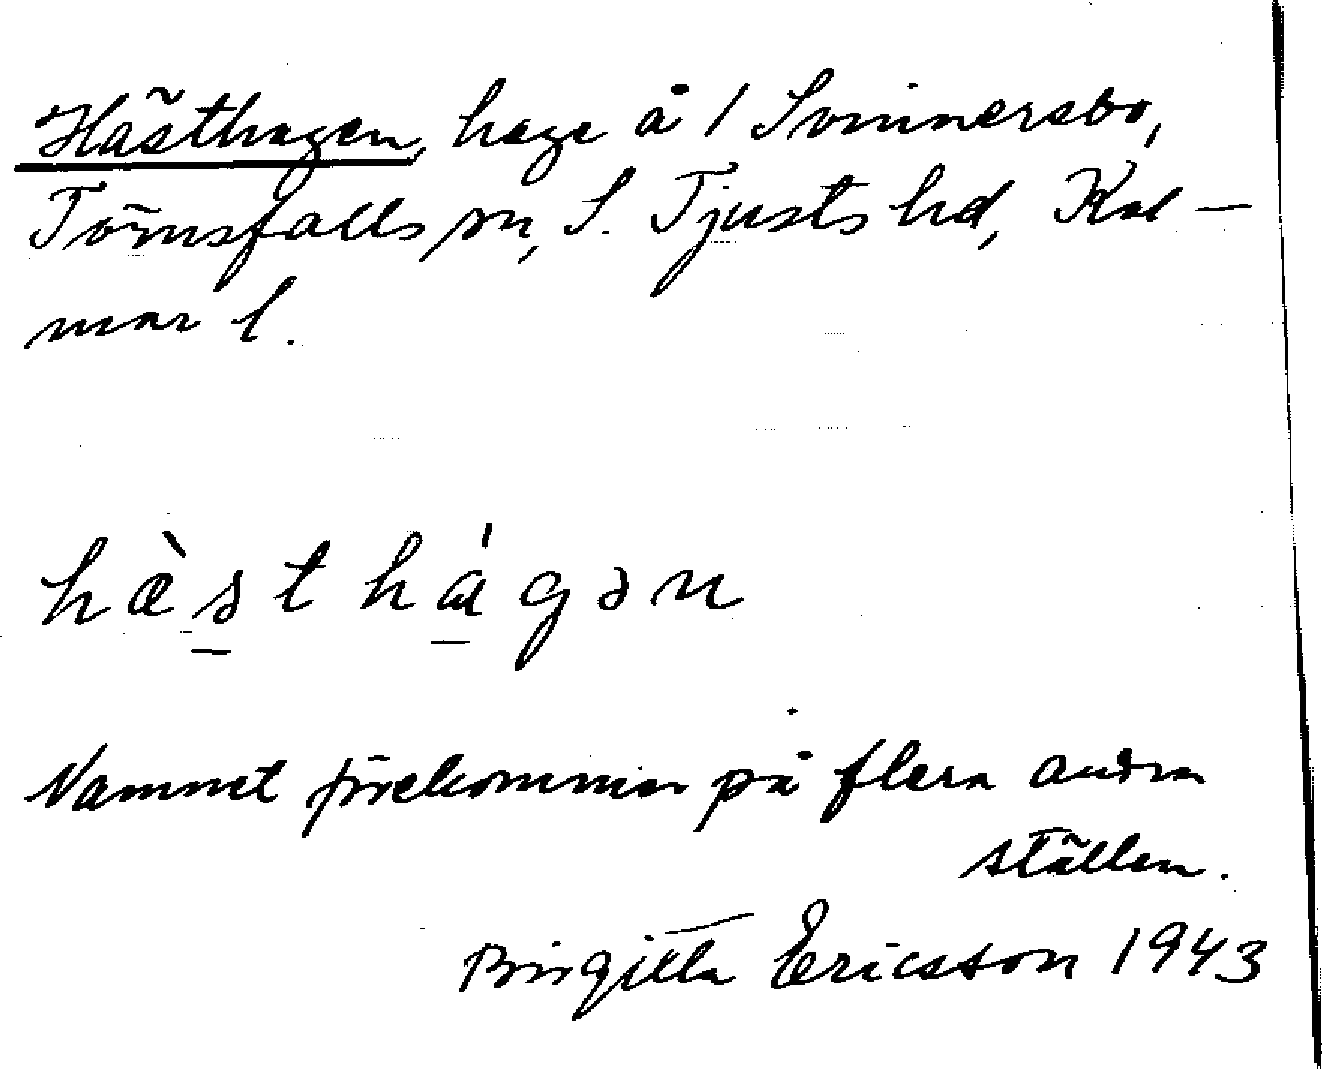 Hästhagen, hage å 1 Svinnersbo,
Törnsfalls sn, S. Tjusts hd, Kal-
mar l.
hæ̀st hágən
Namnet förekommer på flera andra
ställen.
Birgitta Ericsson 1943